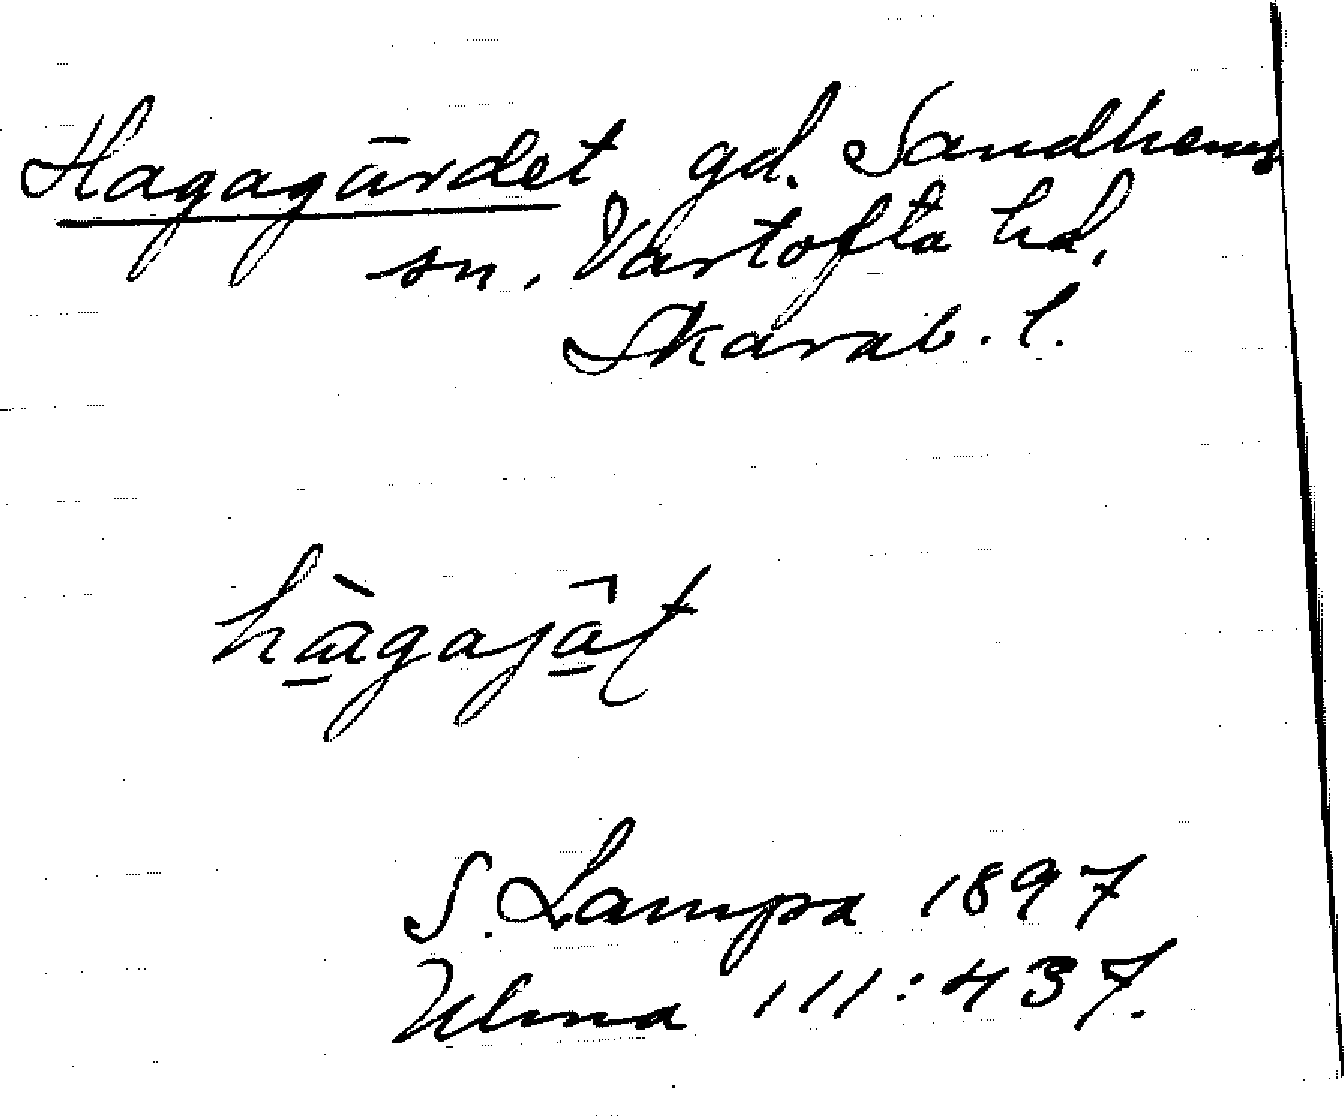 Hagagärdet gd. Sandhems
sn. Vartofta hd.
Skarab. l.
hàgajât
S. Lampa 1897
Ulma 111:437.